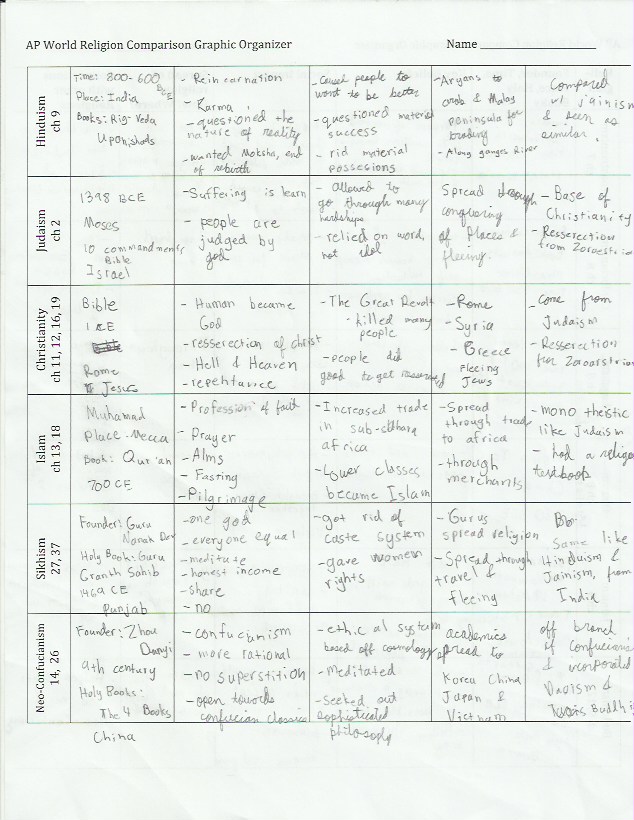 AP World Religion Comparison Graphic Organizer
Name
Hinduism
ch 9
Time: 800-600
BCE
Place: India
Books: Rig-Veda
Upanishads
- Reincarnation
- Karma,
- questioned the
nature of reality
- wanted Moksha, end
of rebirth
- caused people to
want to be better
- questioned material
success
- rid material
possesions
- Aryans to
arab & Malay
peninsula for
trading
- Along ganges River
Compared
w/ jainism
& seen as
similar.
Judaism
ch 2
1398 BCE
Moses
10 commandments
Bible
Israel
- Suffering is learn
- people are
judged by
god
- Allowed to
go through many
hardships
- relied on word,
not idol
Spread through
conquering
of places &
fleeing.
- Base of
Christianity
- Resserection
from Zoroastrian
Christianity
ch 11, 12, 16, 19
Bible
1 CE
Rome
Jesus
- Human became
God
- resserection of christ
- Hell & Heaven
- repentance
- The Great Revolt
- killed many
people
- people did
good to get
- Rome
- Syria
- Greece
Fleeing
Jews
- come from
Judaism
- Resserection
for Zoroastrian
Islam
ch 13, 18
Muhamad
Place - Mecca
Book: Qur'an
700 CE
- Profession of faith
- Prayer
- Alms
- Fasting
- Pilgrimage
- Increased trade
in sub-sahara
africa
- Lower classes
became Islam
- Spread
through trade
to africa
- through
merchants
- mono theistic
like Judaism
- had a religes
textbook
Sikhism
27, 37
Founder: Guru
Nanak Dev
Holy Book: Guru
Granth Sahib
1469 CE
Punjab
- one god
- everyone equal
- meditate
- honest income
- share
- no
- got rid of
caste system
- gave women
rights
- Gurus
spread religion
- Spread through
travel &
fleeing
Same like
Hinduism &
Jainism, from
India
Neo-Confucianism
14, 26
Founder: Zhou
Dunyi
9th century
Holy Books:
The 4 Books
China
- confucianism
- more rational
- no superstition
- open towards
confucian classics
- ethical system
based off cosmology
- Meditated
- seeked out
sophisticated
philosophy
academics
spread to
Korea China
Japan &
Vietnam
off branch
of Confucianis
& incorporated
Daoism &
Buddhi